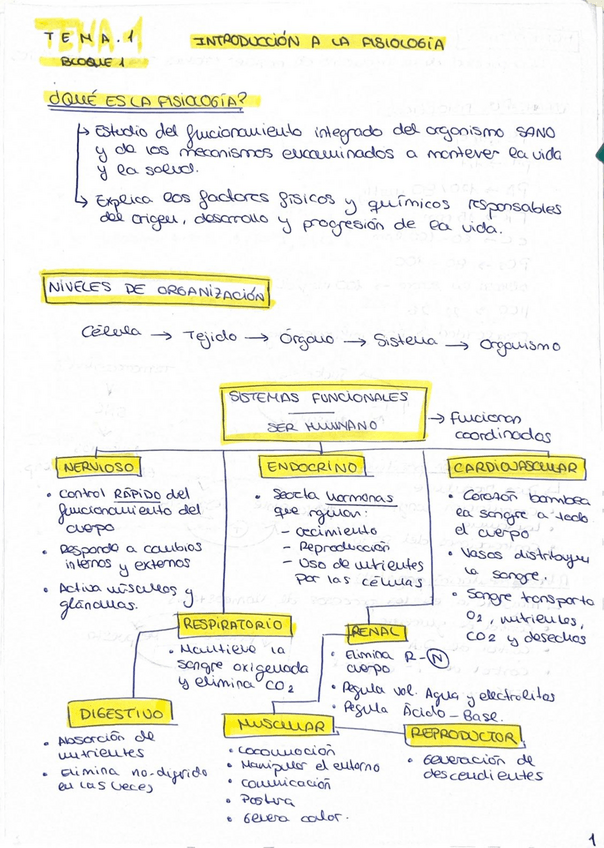 TEMA.1
INTRODUCCIÓN A LA FISIOLOGÍA
BLOQUE 1
¿QUÉ ES LA FISIOLOGÍA?
↳ Estudio del funcionamiento integrado del organismo SANO
y de los mecanismos encaminados a mantener la vida
y la salud.
↳ Explica los factores físicos y químicos responsables
del origen, desarrollo y progresión de la vida.
NIVELES DE ORGANIZACIÓN
Célula → Tejido → Órgano → Sistema → Organismo
SISTEMAS FUNCIONALES
SER HUMANO
→ Funcionan
coordinados
NERVIOSO
• Control RÁPIDO del
funcionamiento del
cuerpo
• Responde a cambios
internos y externos
• Activa músculos y
glándulas.
ENDOCRINO
• Secreta hormonas
que regulan:
- crecimiento
- Reproducción
- Uso de nutrientes
por las células
CARDIOVASCULAR
• Corazón bombea
la sangre a todo
el cuerpo
• Vasos distribuyen
la sangre.
• Sangre transporta
O2, nutrientes,
CO2 y desechos
RESPIRATORIO
• Mantiene la
sangre oxigenada
y elimina CO2
RENAL
• Elimina R-N
cuerpo
• Regula vol. Agua y electrolitos
• Regula Ácido-Base.
DIGESTIVO
• Absorción de
nutrientes
• Elimina no-digerido
en las heces
MUSCULAR
• Locomoción
• Manipular el entorno
• Comunicación
• Postura
• Genera calor.
REPRODUCTOR
• Generación de
descendientes
1